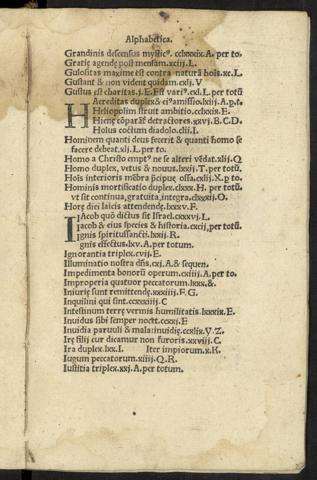 Alphabetica.
Grandinis descensus mystic⁹. cclxxix.A. per to.
Gratię agendę post mensam.xciij.L.
Gulositas maxime est contra naturā hoīs.xc.L.
Gustant & non vident quidam.cxlj.V
Gustus est charitas.j.E. Est vari⁹.cxl.L per totū
Haereditas duplex & ei⁹ amissio.lxij.A.p.t.
Heliopolim struit ambitio.ccbxix.E.
Hienę cōparāt detractores.xxvj.B.C.D
Holus coctum diadolo.clij.I.
Hominem quanti deus fecerit & quanti homo se
facere debeat.xlj.L.per to.
Homo a Christo empt⁹ ne se alteri vēdat.xlij.Q
Homo duplex, vetus & nouus.lxij.T. per totū.
Hoīs interioris mēbra p̄cipue, ossa.cxlij.X.p to
Hominis mortificatio duplex clxxx.H. per totū
vt sit continua, gratuita, integra.clxxxij.O.
Horę diei laicis attendendę.lxxxv.F.
Iacob quo dictus sit Israel.cxxxvj.L.
Iacob & eius species & historia.cxcij,per totū.
Ignis spiritussancti.bxij.R.
Ignis effectus.lxv.A.per totum.
Ignorantia triplex.cvij.E.
Illuminatio nostra dn̄s.cxj.A.& sequen.
Impedimenta bonorū operum.cxiiij.A. per to.
Improperia quatuor peccatorum.lxxx.&.
Iniurię sunt remittendę.xxxiij.F.G.
Inquilini qui sint.ccxxiiij.C
Intestinum terrę vermis humilitatis.lxxxix.E.
Inuidus sibi semper nocet.ccxxj.E
Inuidia paruuli & mala:inuidię.ccxlix.V.Z.
Irę filij cur dicamur non furoris.xxviij.C.
Ira duplex.lxx.I. Iter impiorum.x.K.
Iugum peccatorum.xiiij.Q.R.
Iustitia triplex.xxj.A. per totum.